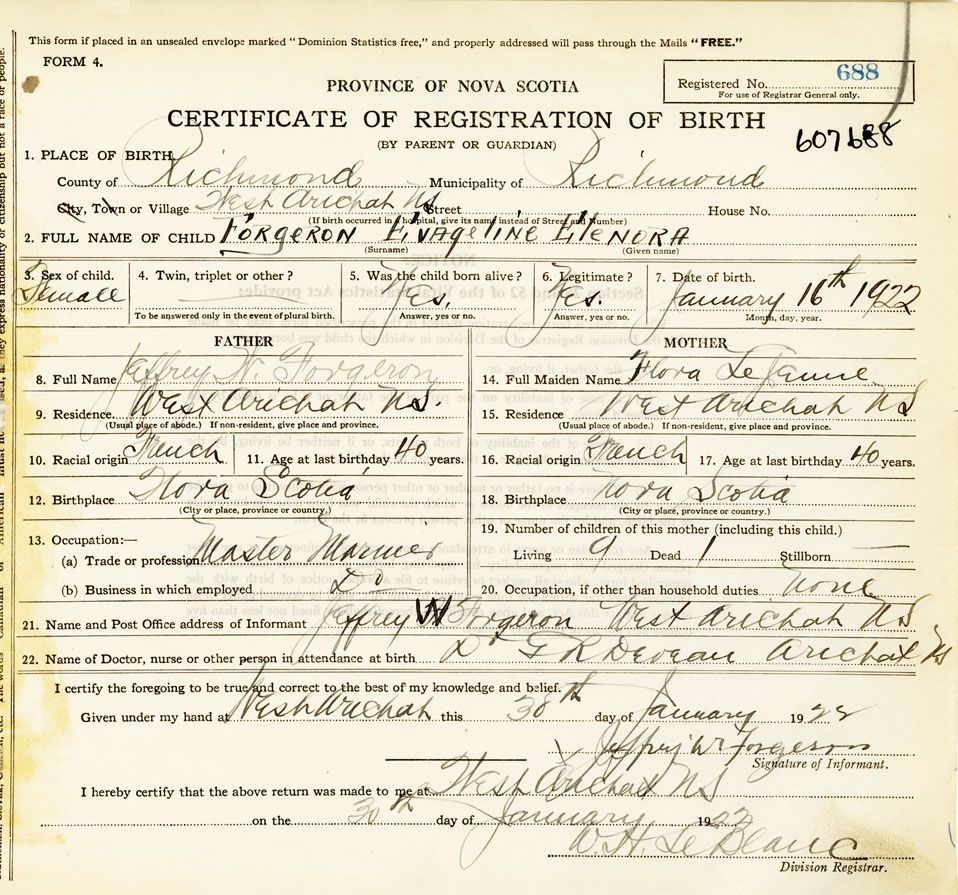 This form if placed in an unsealed envelope marked "Dominion Statistics free," and properly addressed will pass through the Mails "FREE."
FORM 4.
PROVINCE OF NOVA SCOTIA
Registered No. 688
For use of Registrar General only.
CERTIFICATE OF REGISTRATION OF BIRTH
(BY PARENT OR GUARDIAN)
607688
1. PLACE OF BIRTH
County of Richmond Municipality of Richmond
City, Town or Village West Arichat NS Street House No.
(If birth occurred in hospital, give its name instead of Street and Number)
2. FULL NAME OF CHILD Forgeron Evageline Elenora
(Surname) (Given name)
3. Sex of child. 4. Twin, triplet or other? 5. Was the child born alive? 6. Legitimate? 7. Date of birth.
Female Yes. Yes. January 16th 1922
To be answered only in the event of plural birth. Answer, yes or no. Answer, yes or no. Month, day, year.
FATHER MOTHER
8. Full Name Jeffrey W. Forgeron 14. Full Maiden Name Flora LeJeune
9. Residence. West Arichat NS. 15. Residence West Arichat NS
(Usual place of abode.) If non-resident, give place and province. (Usual place of abode.) If non-resident, give place and province.
10. Racial origin French 11. Age at last birthday 40 years. 16. Racial origin French 17. Age at last birthday 40 years.
12. Birthplace Nova Scotia 18. Birthplace Nova Scotia
(City or place, province or country.) (City or place, province or country.)
13. Occupation:— 19. Number of children of this mother (including this child.)
(a) Trade or profession Master Mariner Living 9 Dead 1 Stillborn
(b) Business in which employed Do 20. Occupation, if other than household duties None
21. Name and Post Office address of Informant Jeffrey W Forgeron West Arichat NS
22. Name of Doctor, nurse or other person in attendance at birth Dr Deveau Arichat NS
I certify the foregoing to be true and correct to the best of my knowledge and belief.
Given under my hand at West Arichat this 30th day of January 1922
Jeffrey W Forgeron
Signature of Informant.
I hereby certify that the above return was made to me at West Arichat NS
on the 30th day of January 1922
W. H. LeBlanc
Division Registrar.